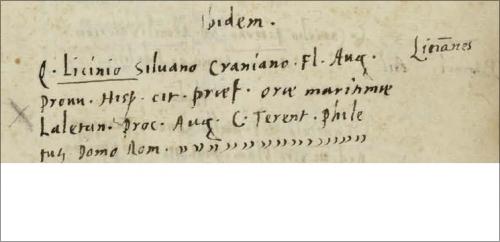 Ibidem.
Q. Licinio Silvano Craniano. Fl. Aug. Licinianes
Provu. Hisp. cit. præf. oræ maritimæ
Laletan. Proc. Aug. C. Terent. Phile
tus Domo Rom.